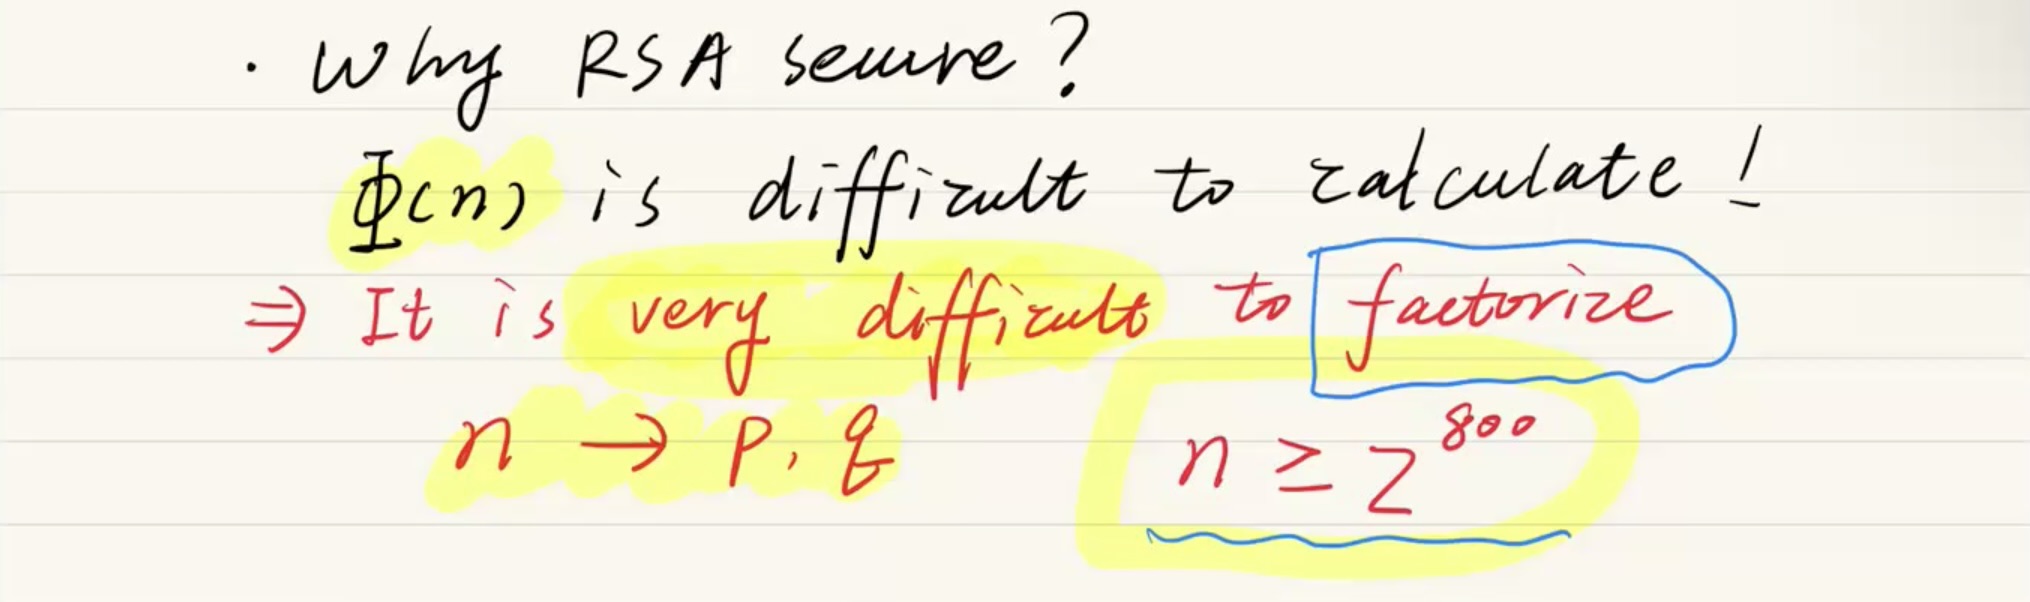 · Why RSA secure?
Φ(n) is difficult to calculate!
⇒ It is very difficult to factorize
n → p, q n ≥ 2^800